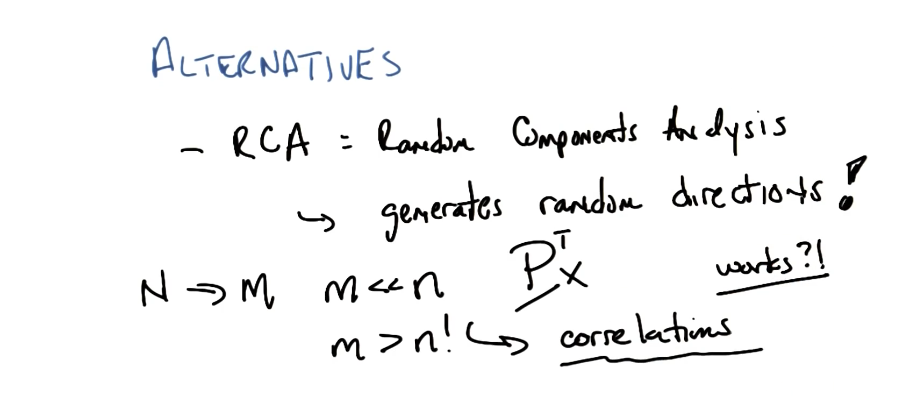 ALTERNATIVES
- RCA = Random Components Analysis
↳ generates random directions!
N ⇒ M m << n P^T x works?!
m > n! ↳ correlations